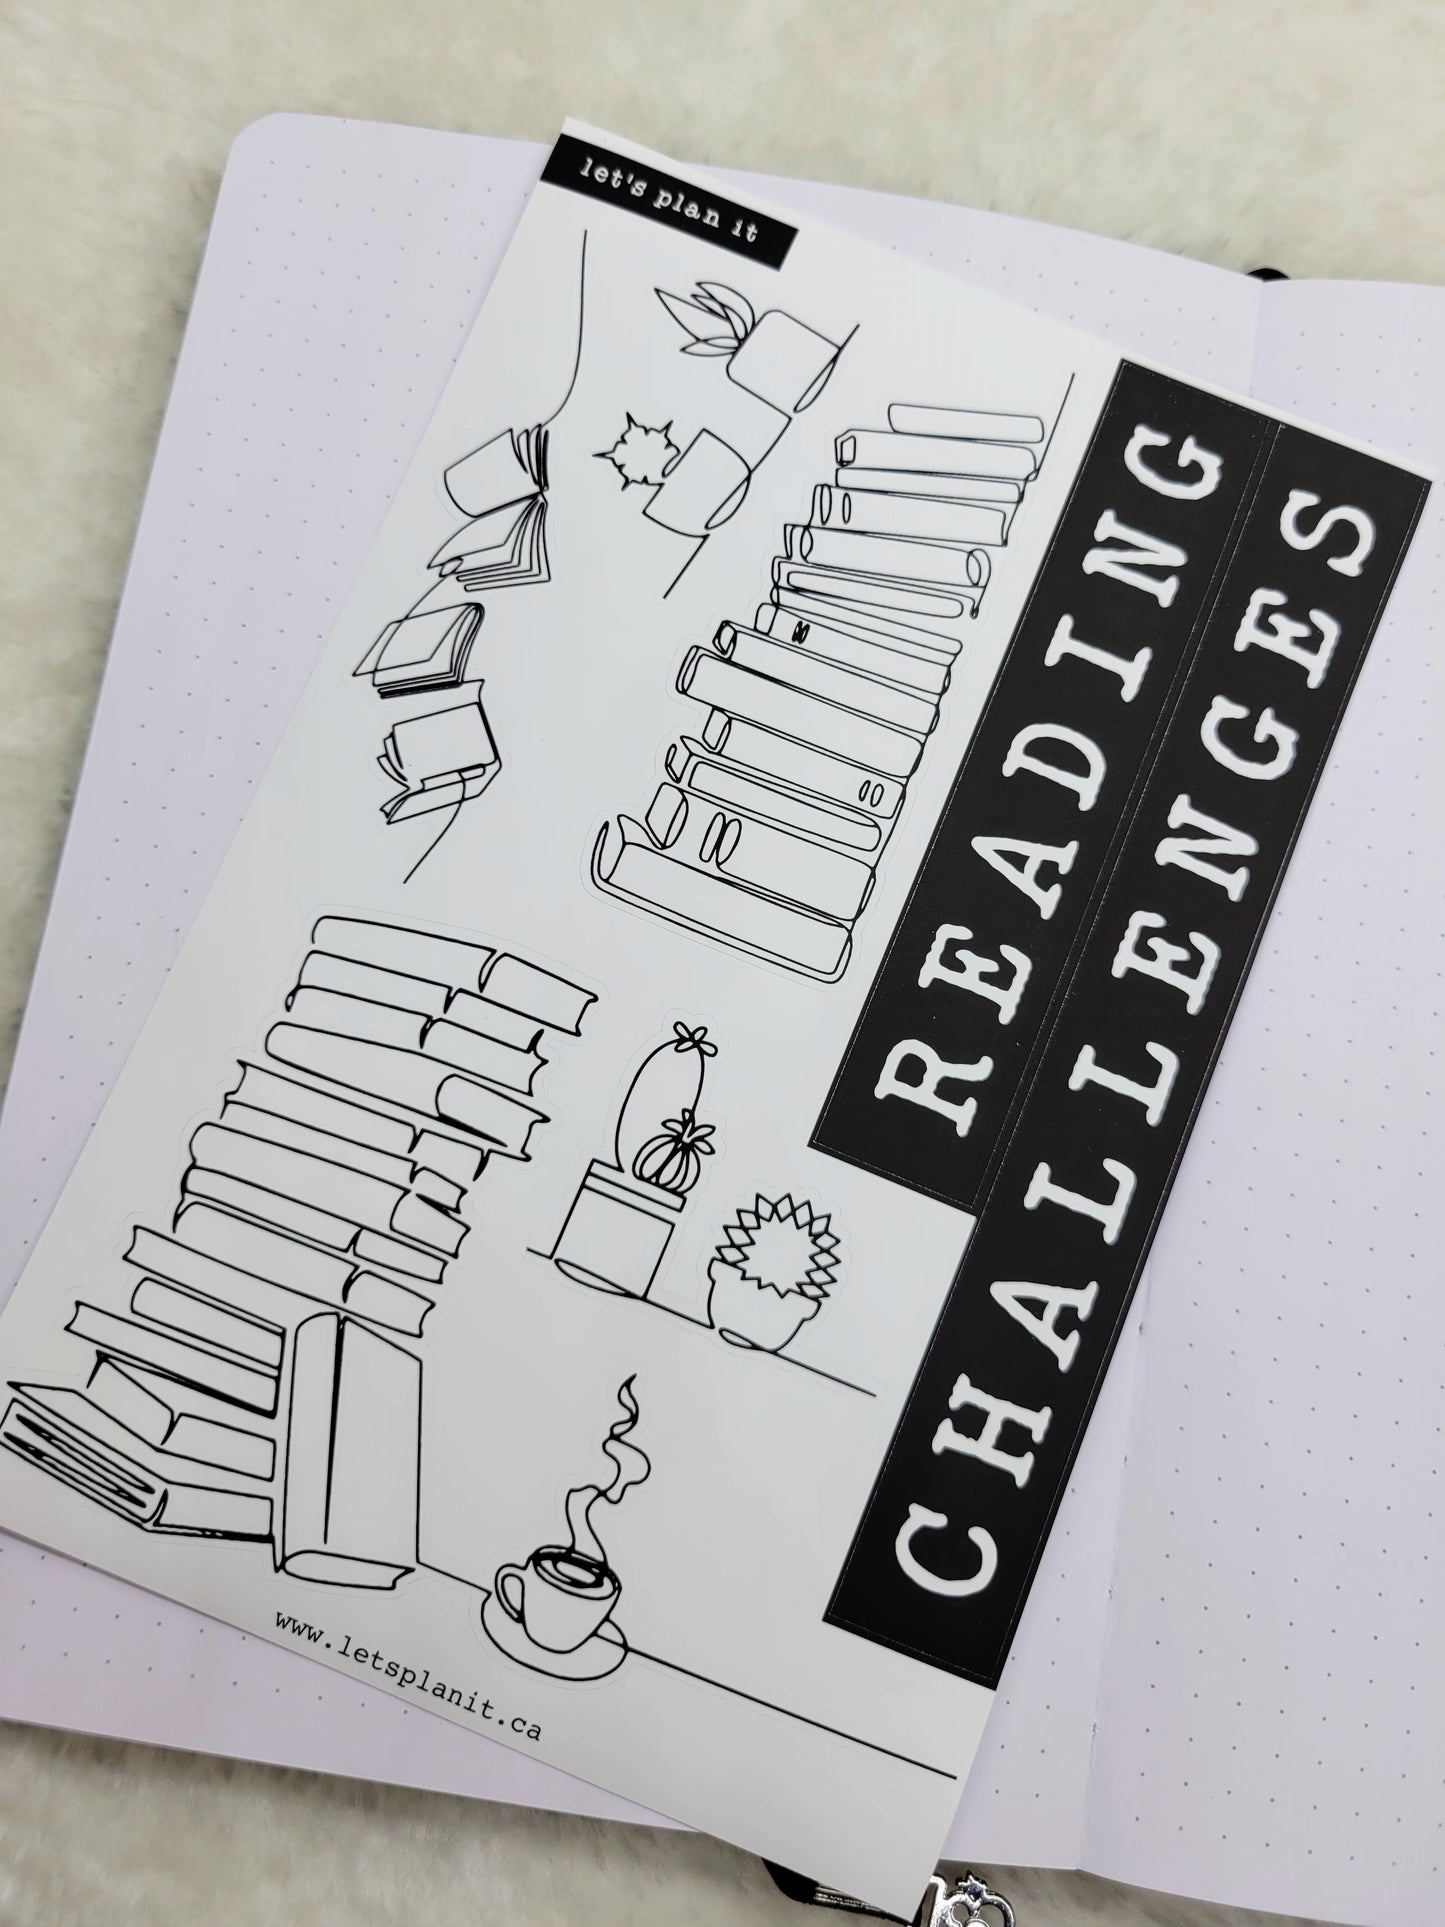 let's plan it
READING
CHALLENGES
www.letsplanit.ca